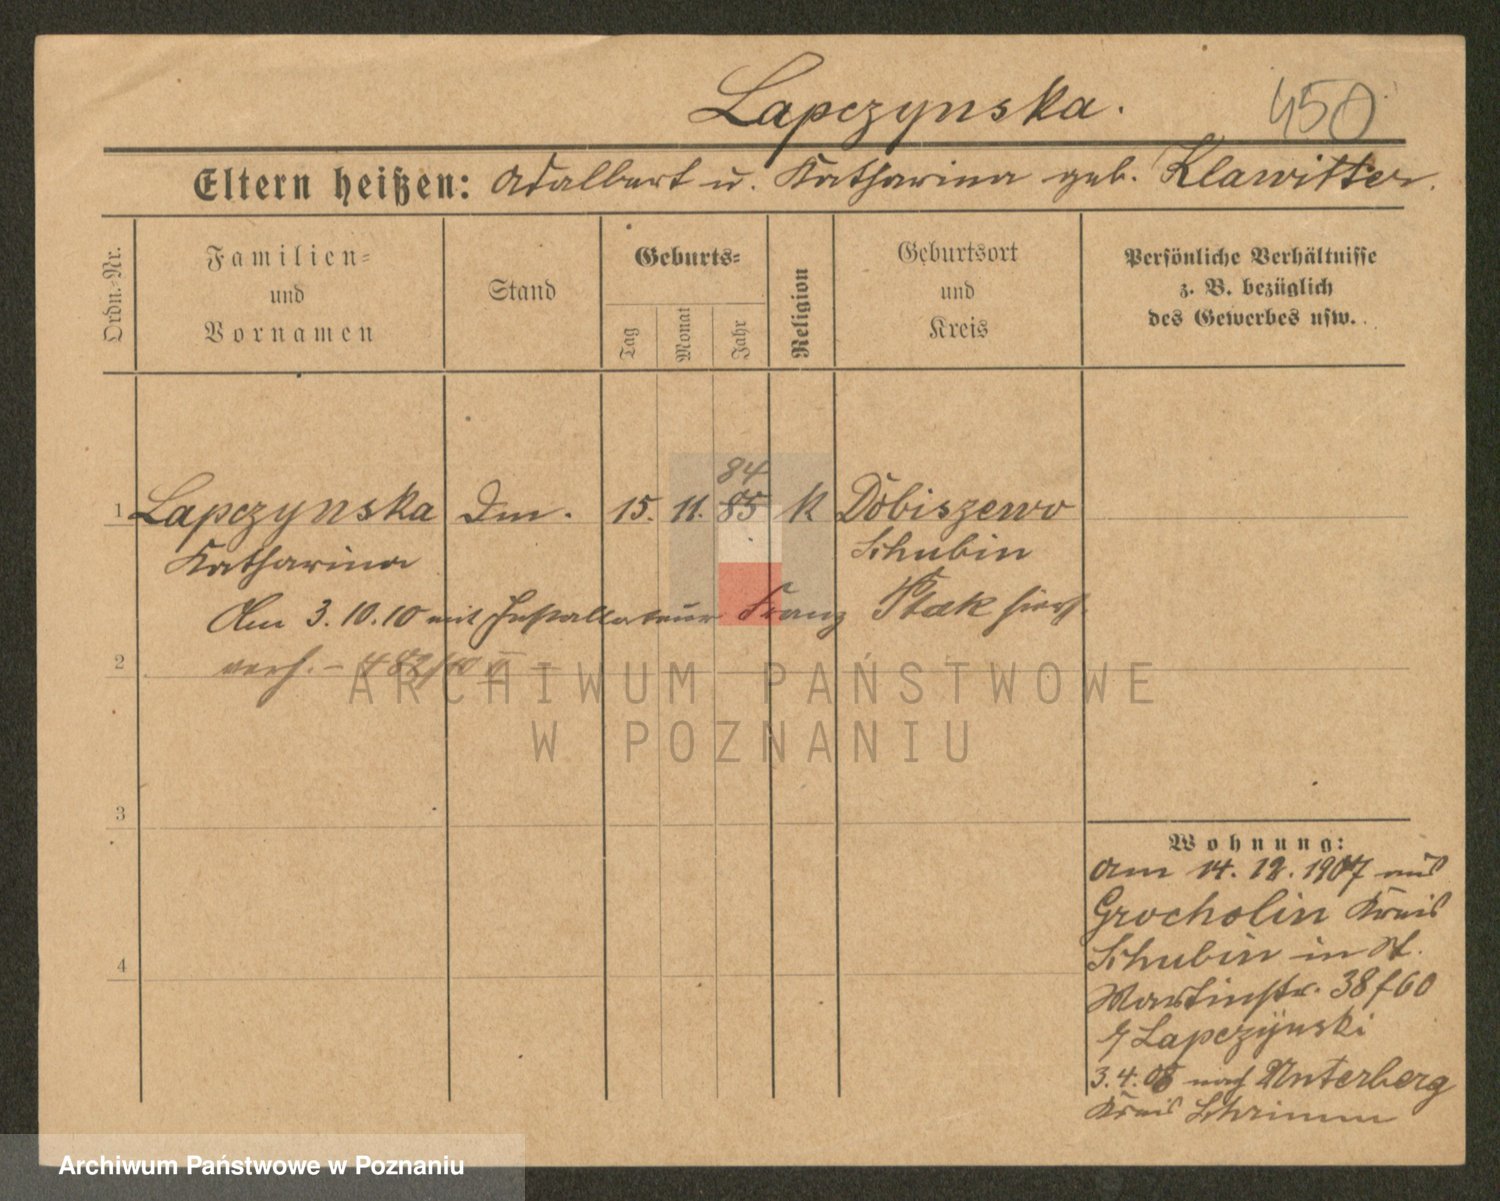 Lapczynska. 450
Eltern heißen: Adalbert u. Katharina geb. Klawitter.
Ordn.-Nr.
Familien-
und
Vornamen
Stand
Geburts-
Tag
Monat
Jahr
Religion
Geburtsort
und
Kreis
Persönliche Verhältnisse
z. B. bezüglich
des Gewerbes usw.
84
1 Lapczynska Dm. 15. 11. 85 K Dobiszewo
Katharina Schubin
Am 3.10.10 mit Installateur Franz Ptak hier
2 verh. - 482/10 V
3
4
Wohnung:
Am 14. 12. 1907 aus
Grocholin Kreis
Schubin in St.
Martinstr. 38 f 60
Lapczÿnski
3.4.08 nach Unterberg
Kreis Schrimm
ARCHIWUM PAŃSTWOWE
W POZNANIU
Archiwum Państwowe w Poznaniu